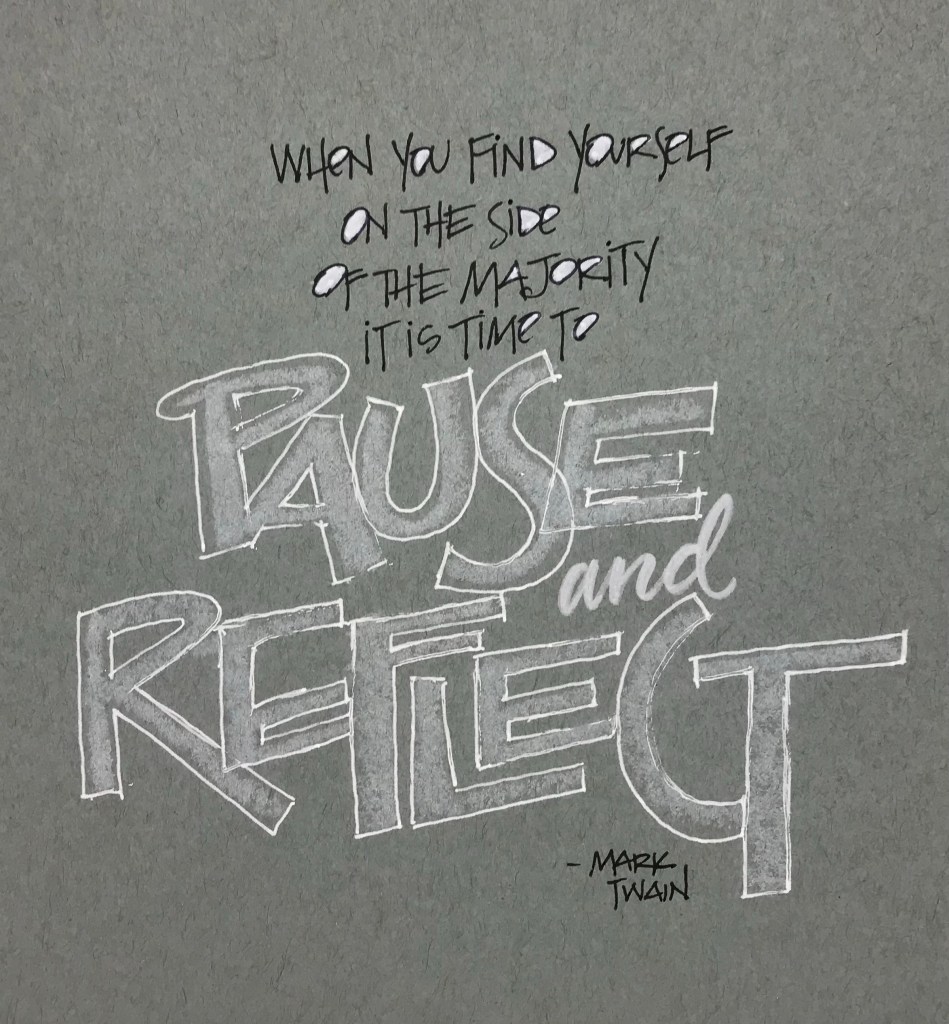 WHEN YOU FIND YOURSELF
ON THE SIDE
OF THE MAJORITY
IT IS TIME TO
PAUSE
and
REFLECT
- MARK
TWAIN